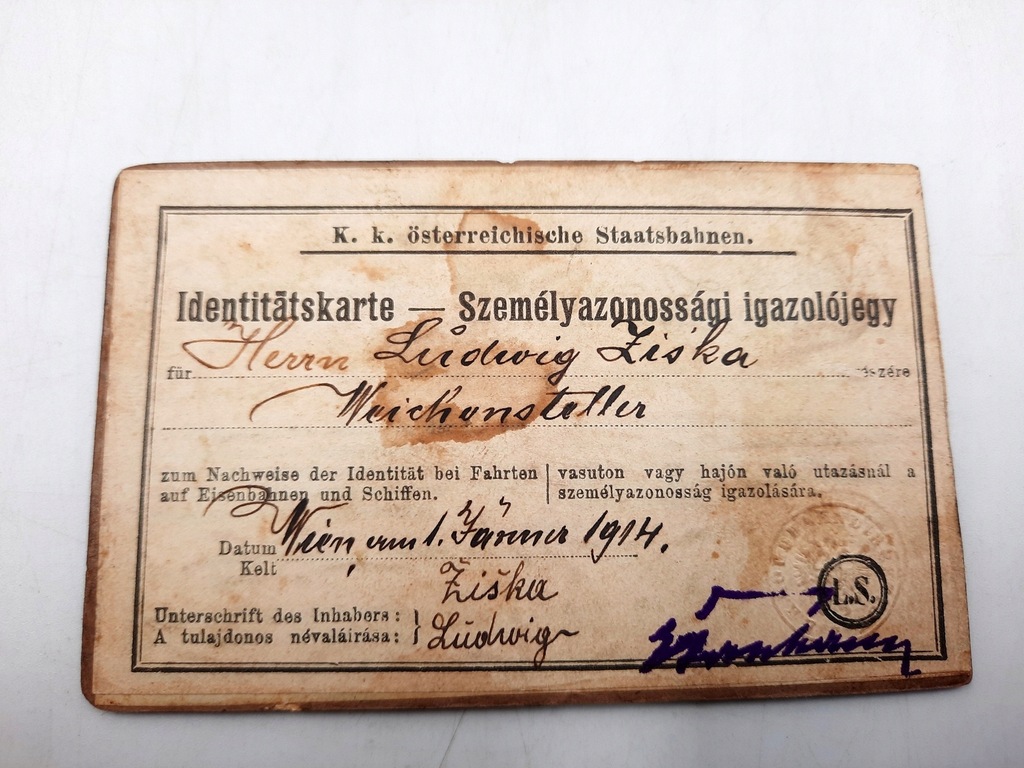 K. k. österreichische Staatsbahnen.
Identitätskarte — Személyazonossági igazolójegy
für Herrn Ludwig Žiška részére
Weichensteller
zum Nachweise der Identität bei Fahrten
auf Eisenbahnen und Schiffen.
vasuton vagy hajón való utazásnál a
személyazonosság igazolására.
Datum Wien, am 1. Jänner 1914.
Kelt
Žiška
Unterschrift des Inhabers:
A tulajdonos névaláirása:
Ludwig
L.S.